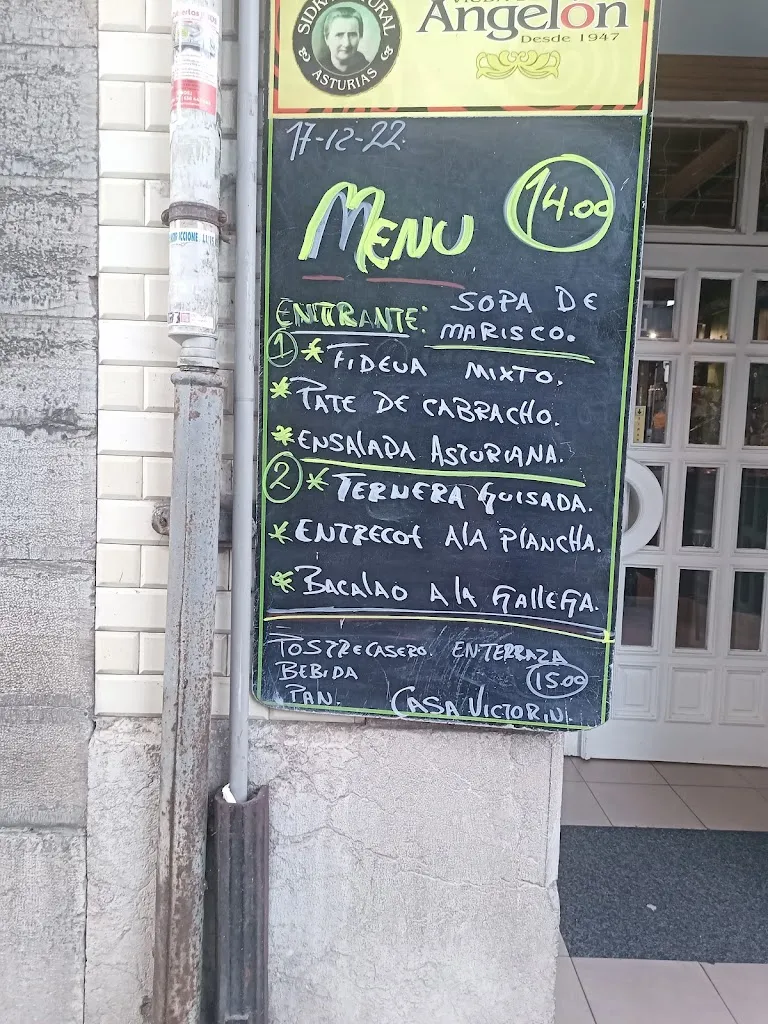 SIDRA NATURAL
ASTURIAS
Angelón
Desde 1947
17-12-22.
MENU
14.00
ENTRANTE: SOPA DE
MARISCO.
1 * FIDEUA MIXTO.
* PATE DE CABRACHO.
* ENSALADA ASTURIANA.
2 * TERNERA GUISADA.
* ENTRECOT A LA PLANCHA.
* BACALAO A LA GALLEGA.
POSTRE CASERO. EN TERRAZA
BEBIDA 15.00
PAN. CASA VICTORINO.